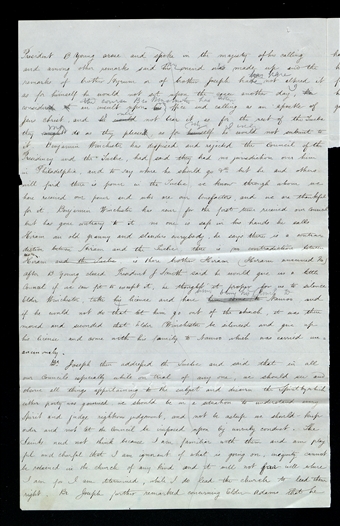 President B Young arose and spoke in the majesty of his calling
and among other remarks said his mind was made up
remarks of brother Hyrum or of brother Joseph
as for himself he would not set upon the case another day
wonderful an insult upon his office and calling as an apostle of
Jesus christ, and he would not bear it, as for the rest of the Twelve
they may do as they please, as for himself, he would not submit to
it Benjamin Winchester has despised and rejected the council of the
Presidency and the Twelve, has said they had no jurisdiction over him
in Philadelphia, and to say where he should go &c but he and others
will find there is power in the Twelve. we know through whom we
has received our power and who are our benefactors and we are thankful
for it. Benjamin Winchester has never for the first time received our council
but has gone contrary to it. no one is safe in his hands he calls
Hiram an old granny and slanders everybody. he says there is a contradiction
between Hiram and the Twelve. there is no contradiction between
Hiram and the Twelve
after B Young closed President J Smith said he would give us a little
council if we can for accept it, he thought it proper for us to silence
Elder Winchester, take his license and have him come to Nauvoo and
if he would not do that let him go out of the church, it was then
moved and seconded that Elder Winchester be silenced and give up
his license and come with his family to Nauvoo which was carried
unanimously.
Br Joseph then addressed the Twelve and said that in all
our councils especially while on trial of any one, we should see and
observe all things appertaining to the subject and discern the spirit by which
either party was governed we should be in a situation to understand any
spirit and judge righteous judgment, and not be asleep we should keep
order and not let the council be imposed upon by unruly conduct. The
Saints need not think because I am familiar with them and am playful
and cheerful that I am ignorant of what is going on, iniquity cannot
be retained in the church of any kind and it will not fare well where
I am for I am determined, while I do lead the church to lead them
right. Br Joseph further remarked concerning Elder Adams that he